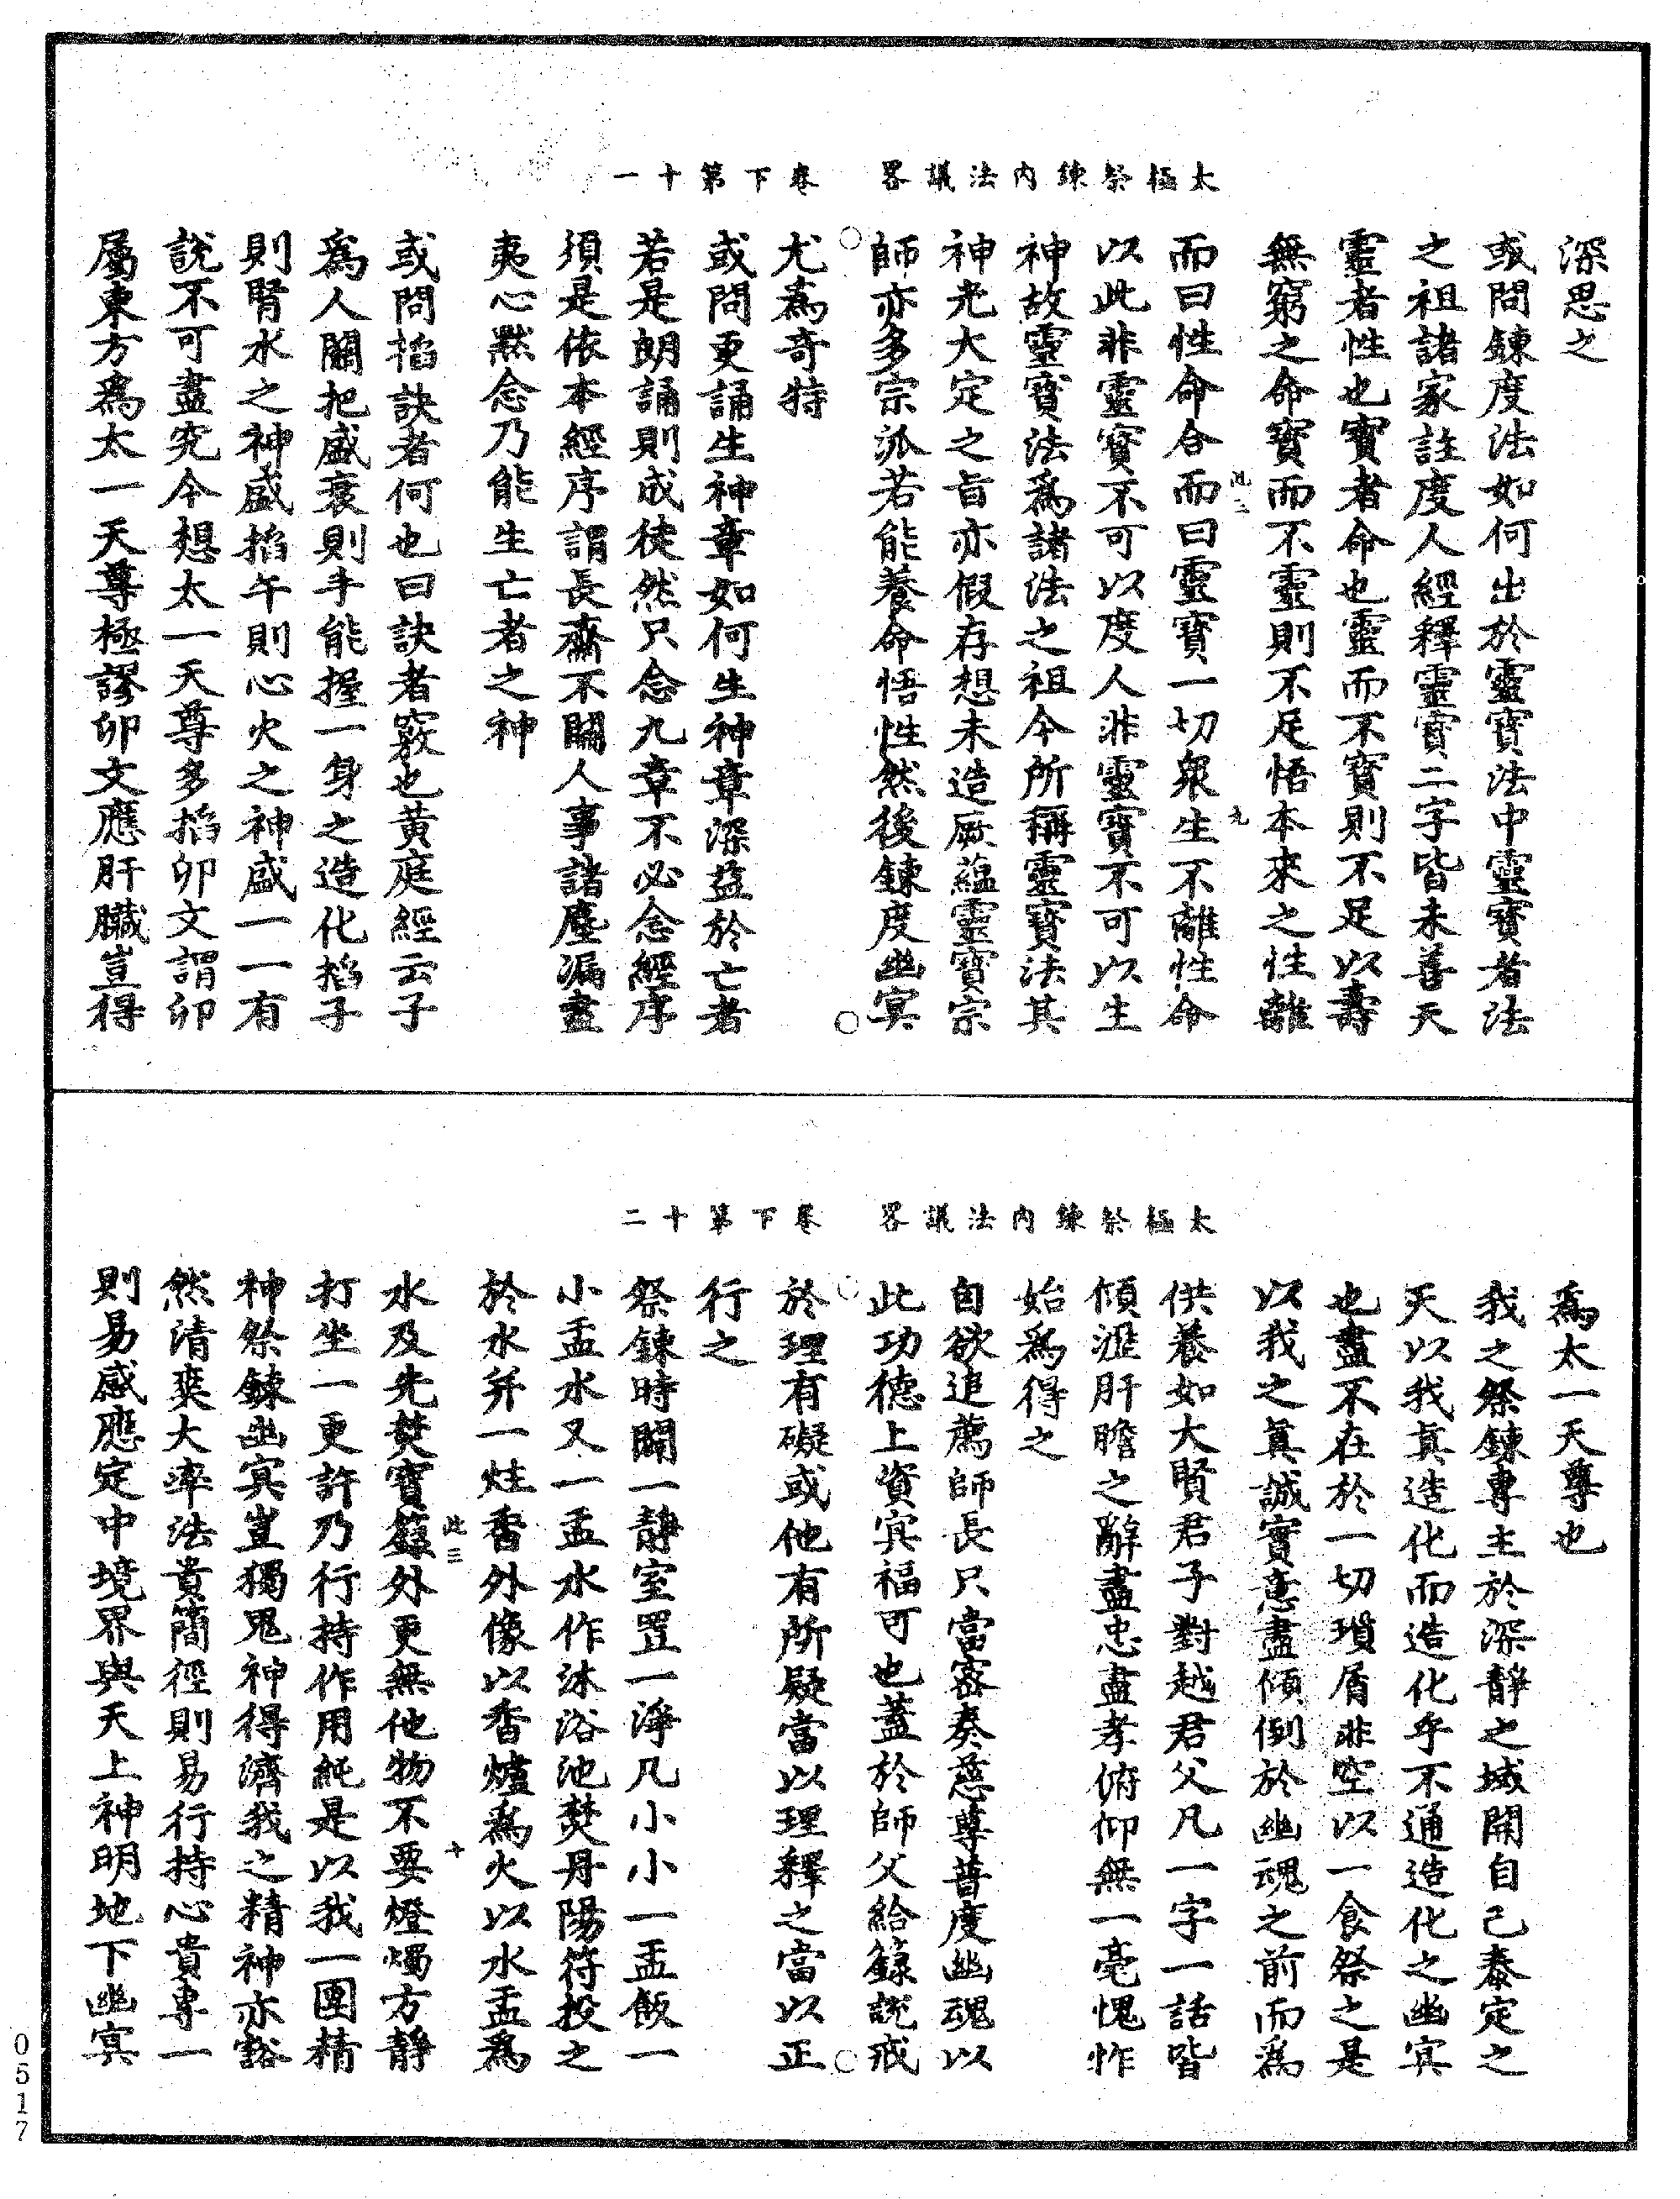 太極祭鍊內法議畧　卷下第十一
深思之
或問鍊度法如何出於靈寶法中靈寶者法
之祖諸家註度人經釋靈寶二字皆未善天
靈者性也寶者命也靈而不寶則不足以壽
無窮之命寶而不靈則不足悟本來之性離
而曰性命合而曰靈寶一切衆生不離性命
以此非靈寶不可以度人非靈寶不可以生
神故靈寶法爲諸法之祖今所稱靈寶法其
神光大定之旨亦假存想未造厥蘊靈寶宗
師亦多宗派若能養命悟性然後鍊度幽冥
尤爲奇特
或問更誦生神章如何生神章深益於亡者
若是朗誦則成徒然只念九章不必念經序
須是依本經序謂長齋不關人事諸塵漏盡
夷心默念乃能生亡者之神
或問掐訣者何也曰訣者竅也黃庭經云子
爲人關把盛衰則手能握一身之造化掐子
則腎水之神盛掐午則心火之神盛一一有
說不可盡究今想太一天尊多掐卯文謂卯
屬東方爲太一天尊極謬卯文應肝臟豈得
太極祭鍊內法議畧　卷下第十二
爲太一天尊也
我之祭鍊專主於深靜之域開自己泰定之
天以我真造化而造化乎不通造化之幽冥
也盡不在於一切瑣屑非空以一食祭之是
以我之真誠實意盡傾倒於幽魂之前而爲
供養如大賢君子對越君父凡一字一話皆
傾涯肝膽之辭盡忠盡孝俯仰無一毫愧怍
始爲得之
自欲追薦師長只當密奏慈尊普度幽魂以
此功德上資冥福可也蓋於師父給籙說戒
於理有礙或他有所疑當以理釋之當以正
行之
祭鍊時關一靜室置一淨凡小小一盂飯一
小盂水又一盂水作沐浴池焚丹陽符投之
於水并一炷香外像以香爐爲火以水盂爲
水及先焚寶籙外更無他物不要燈燭方靜
打坐一更許乃行持作用純是以我一團精
神祭鍊幽冥豈獨鬼神得濟我之精神亦豁
然清爽大率法貴簡徑則易行持心貴專一
則易感應定中境界與天上神明地下幽冥
此二
九
此三
十
0517